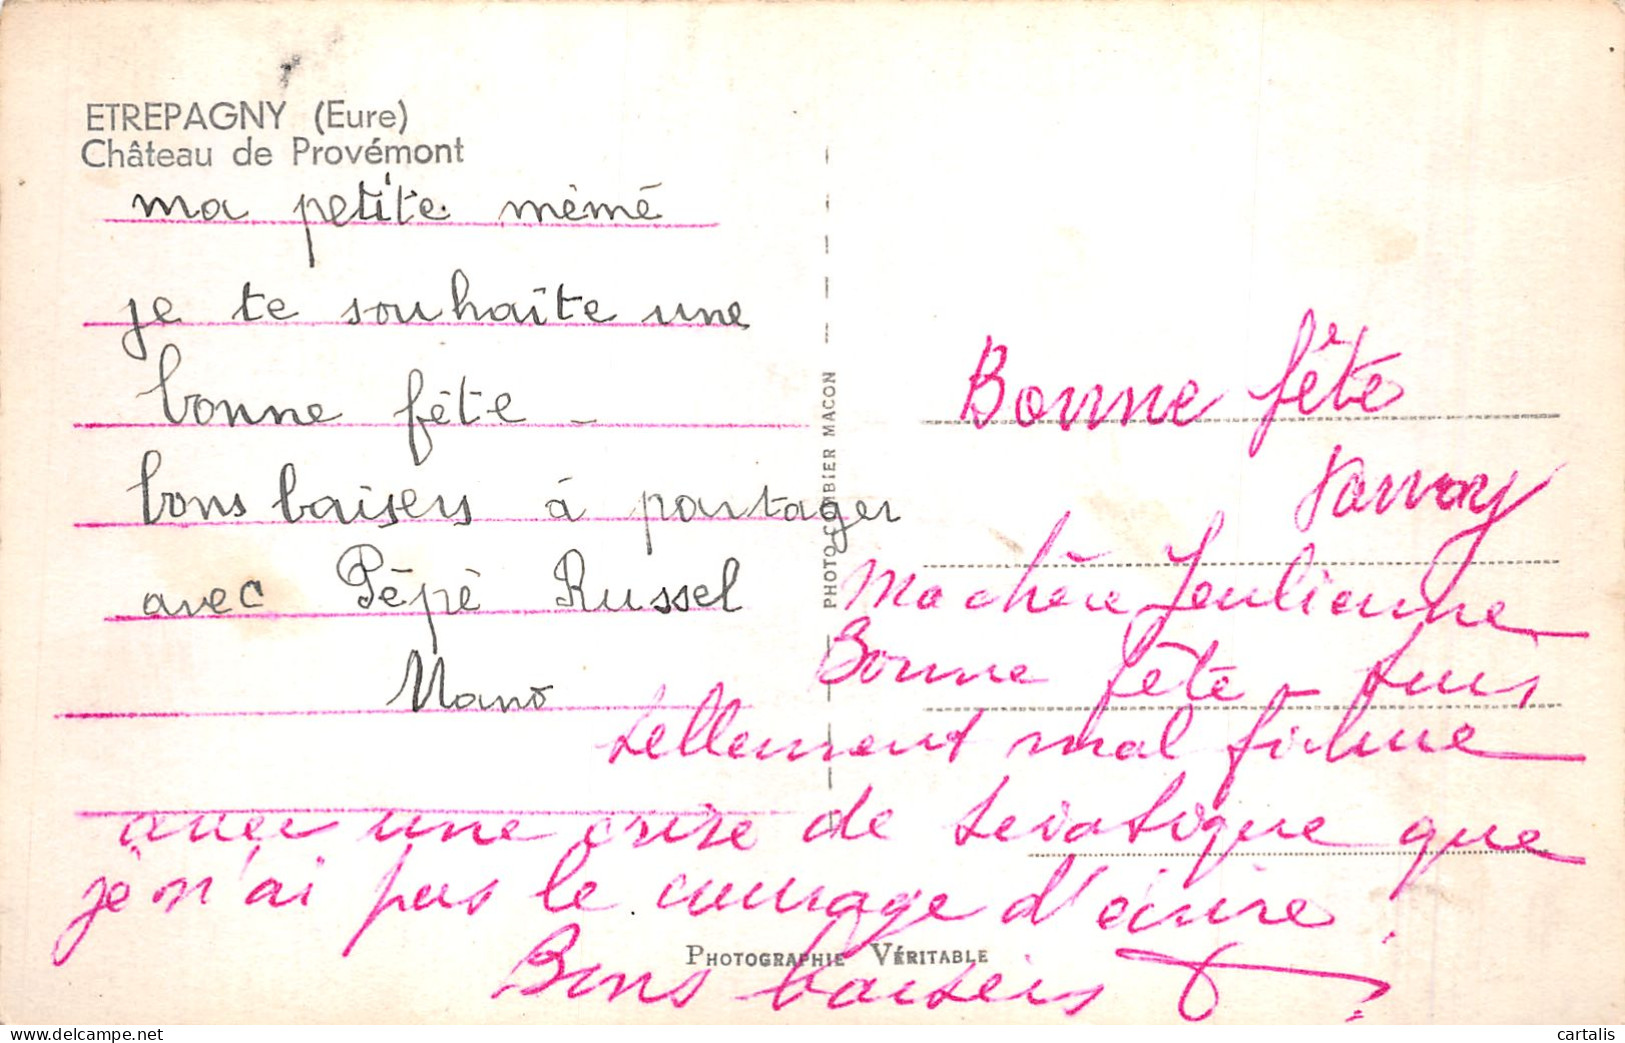 ETREPAGNY (Eure)
Château de Provémont
ma petite mémé
je te souhaite une
bonne fête -
bons baisers à partager
avec Pépé Russel
Nano
PHOTO COMBIER MACON
Bonne fête
Ma chère
Bonne fête - suis
tellement mal fichue
avec une crise de sciatique que
je n'ai pas le courage d'écrire.
PHOTOGRAPHIE VÉRITABLE
Bons baisers
cartalis